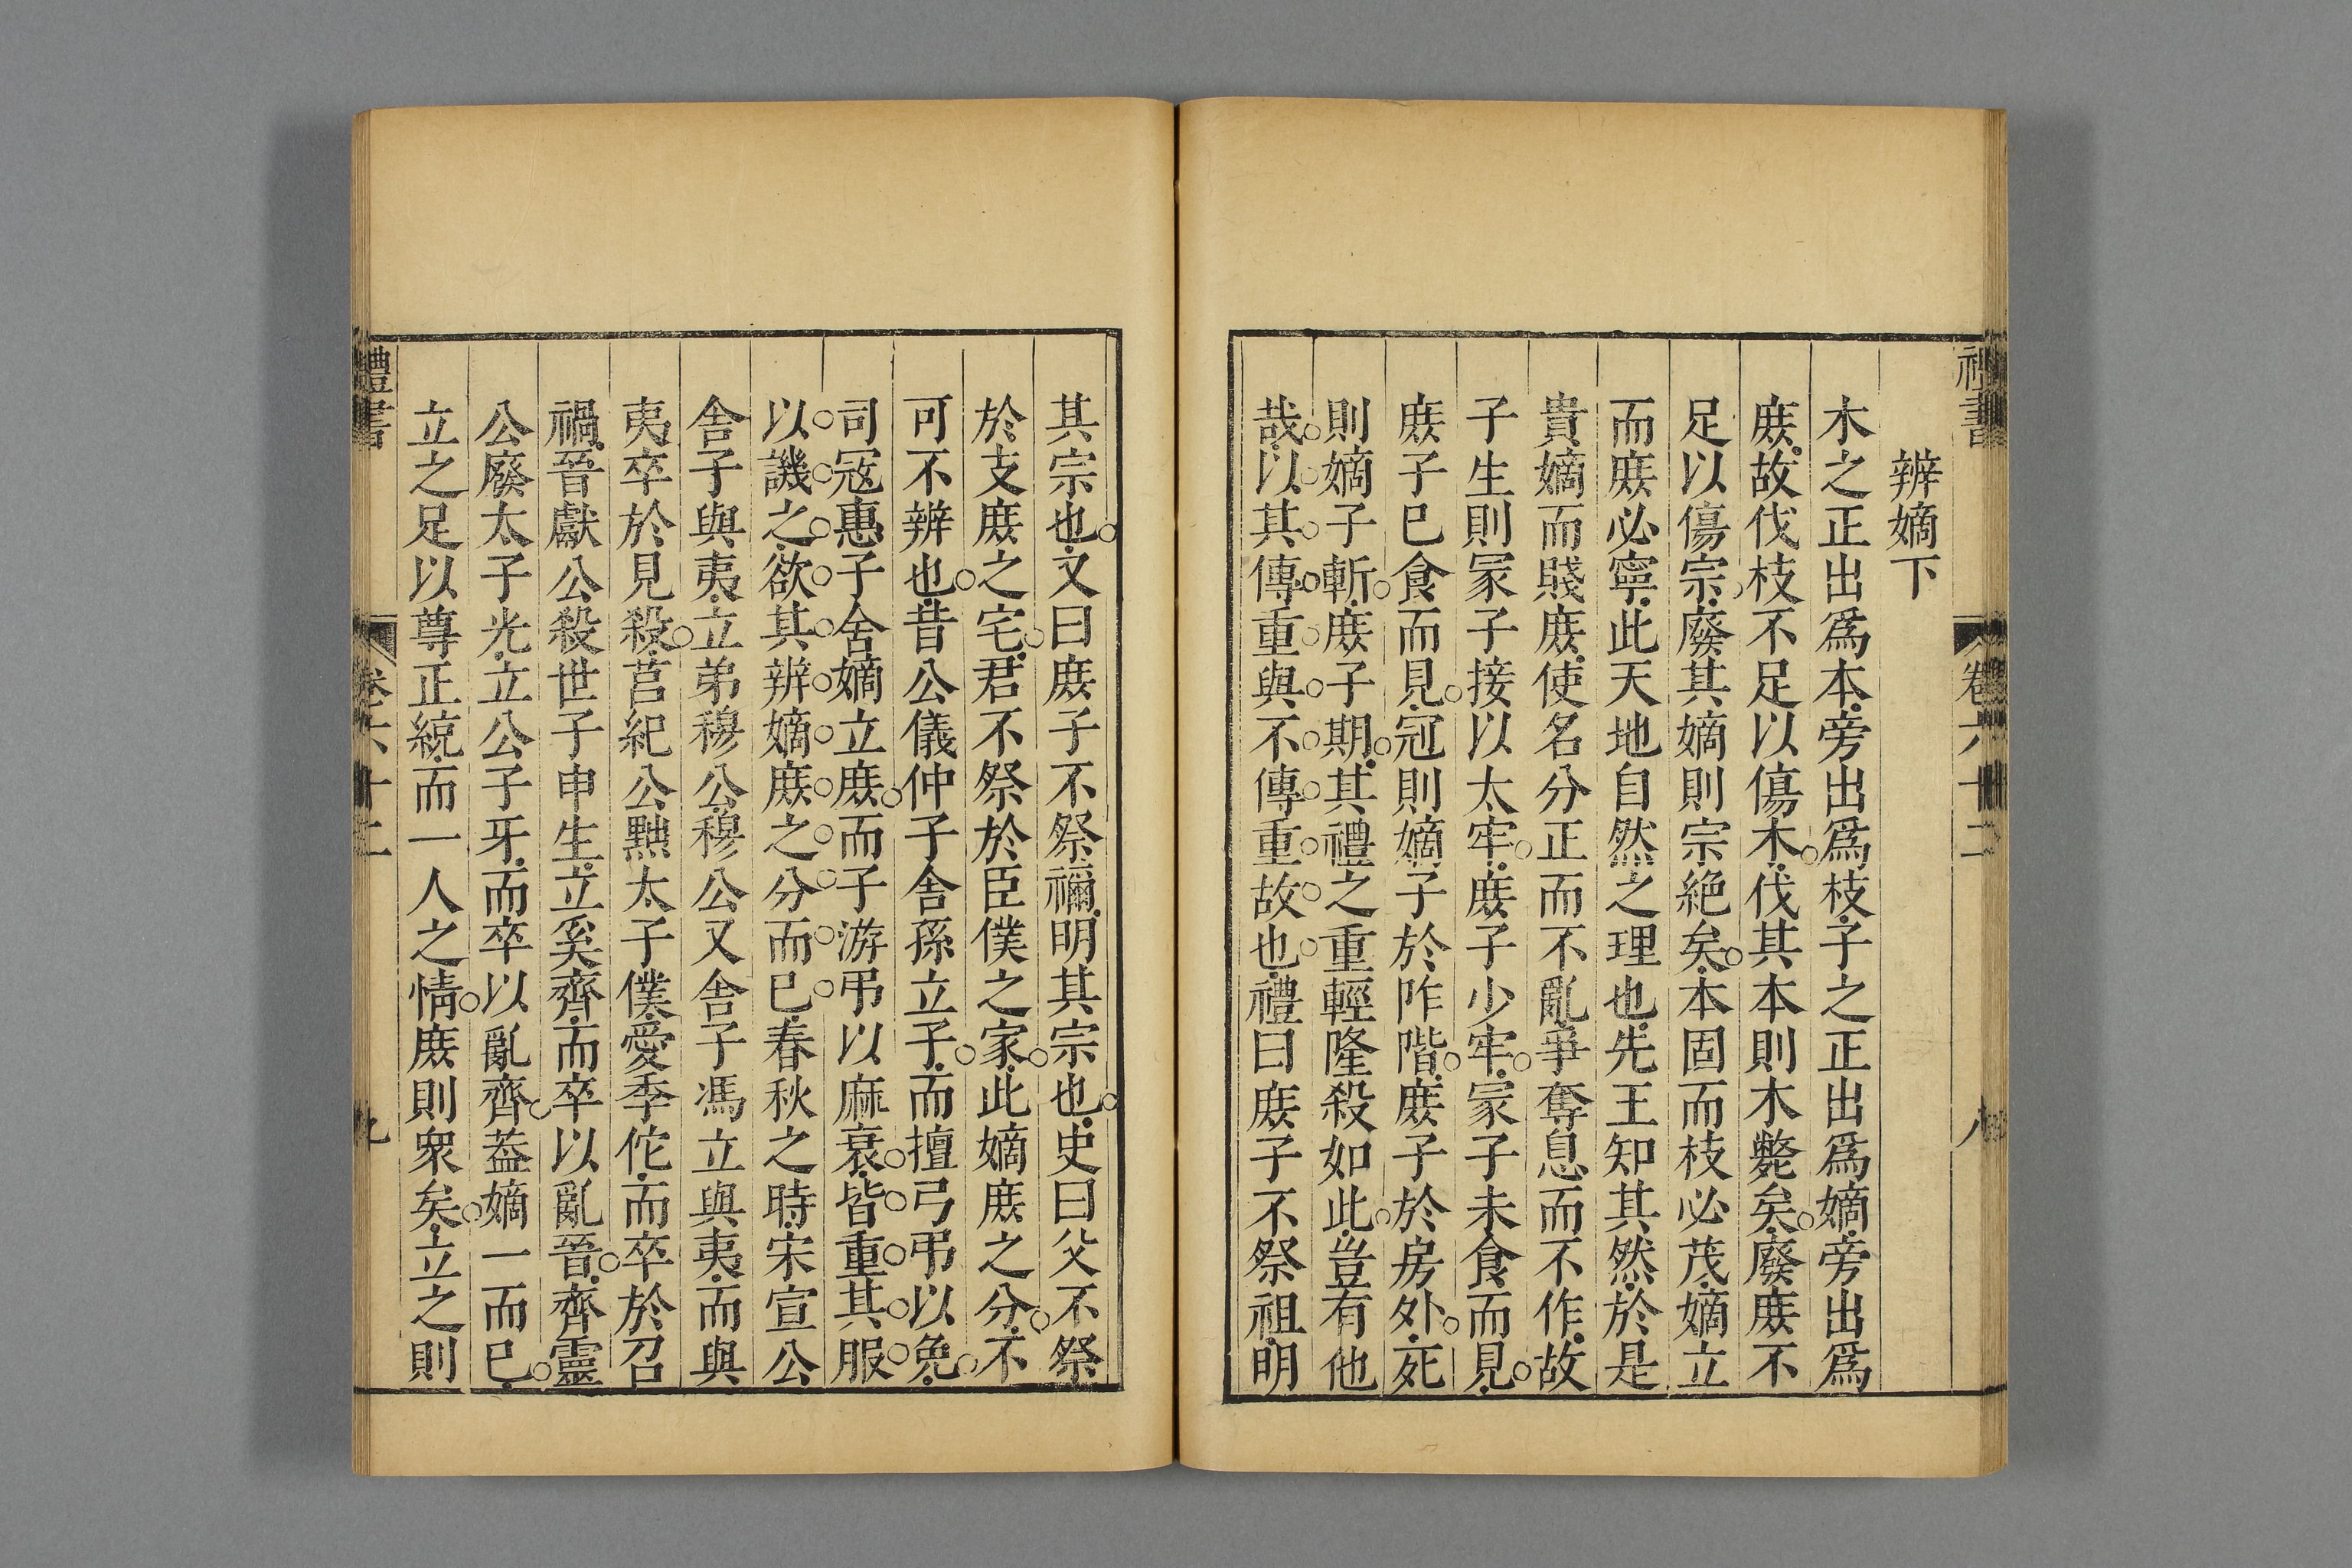 禮書
卷六十二
八
辨嫡下
木之正出爲本旁出爲枝子之正出爲嫡旁出爲
庻故伐枝不足以傷木伐其本則木斃矣廢庻不
足以傷宗廢其嫡則宗絶矣本固而枝必茂嫡立
而庻必寧此天地自然之理也先王知其然於是
貴嫡而賤庻使名分正而不亂爭奪息而不作故
子生則冡子接以太牢庻子少牢冡子未食而見
庻子已食而見冠則嫡子於阼階庻子於房外死
則嫡子斬庻子期其禮之重輕隆殺如此豈有他
哉以其傳重與不傳重故也禮曰庻子不祭祖明
其宗也又曰庻子不祭禰明其宗也史曰父不祭
於支庻之宅君不祭於臣僕之家此嫡庻之分不
可不辨也昔公儀仲子舍孫立子而擅弓弔以免
司寇惠子舍嫡立庻而子游弔以麻衰皆重其服
以譏之欲其辨嫡庻之分而已春秋之時宋宣公
舍子與夷立弟穆公穆公又舍子馮立與夷而與
夷卒於見殺莒紀公黜太子僕愛季佗而卒於召
禍晉獻公殺世子申生立奚齊而卒以亂晉齊靈
公廢太子光立公子牙而卒以亂齊葢嫡一而已
立之足以尊正統而一人之情庻則衆矣立之則
禮書
卷六十二
九